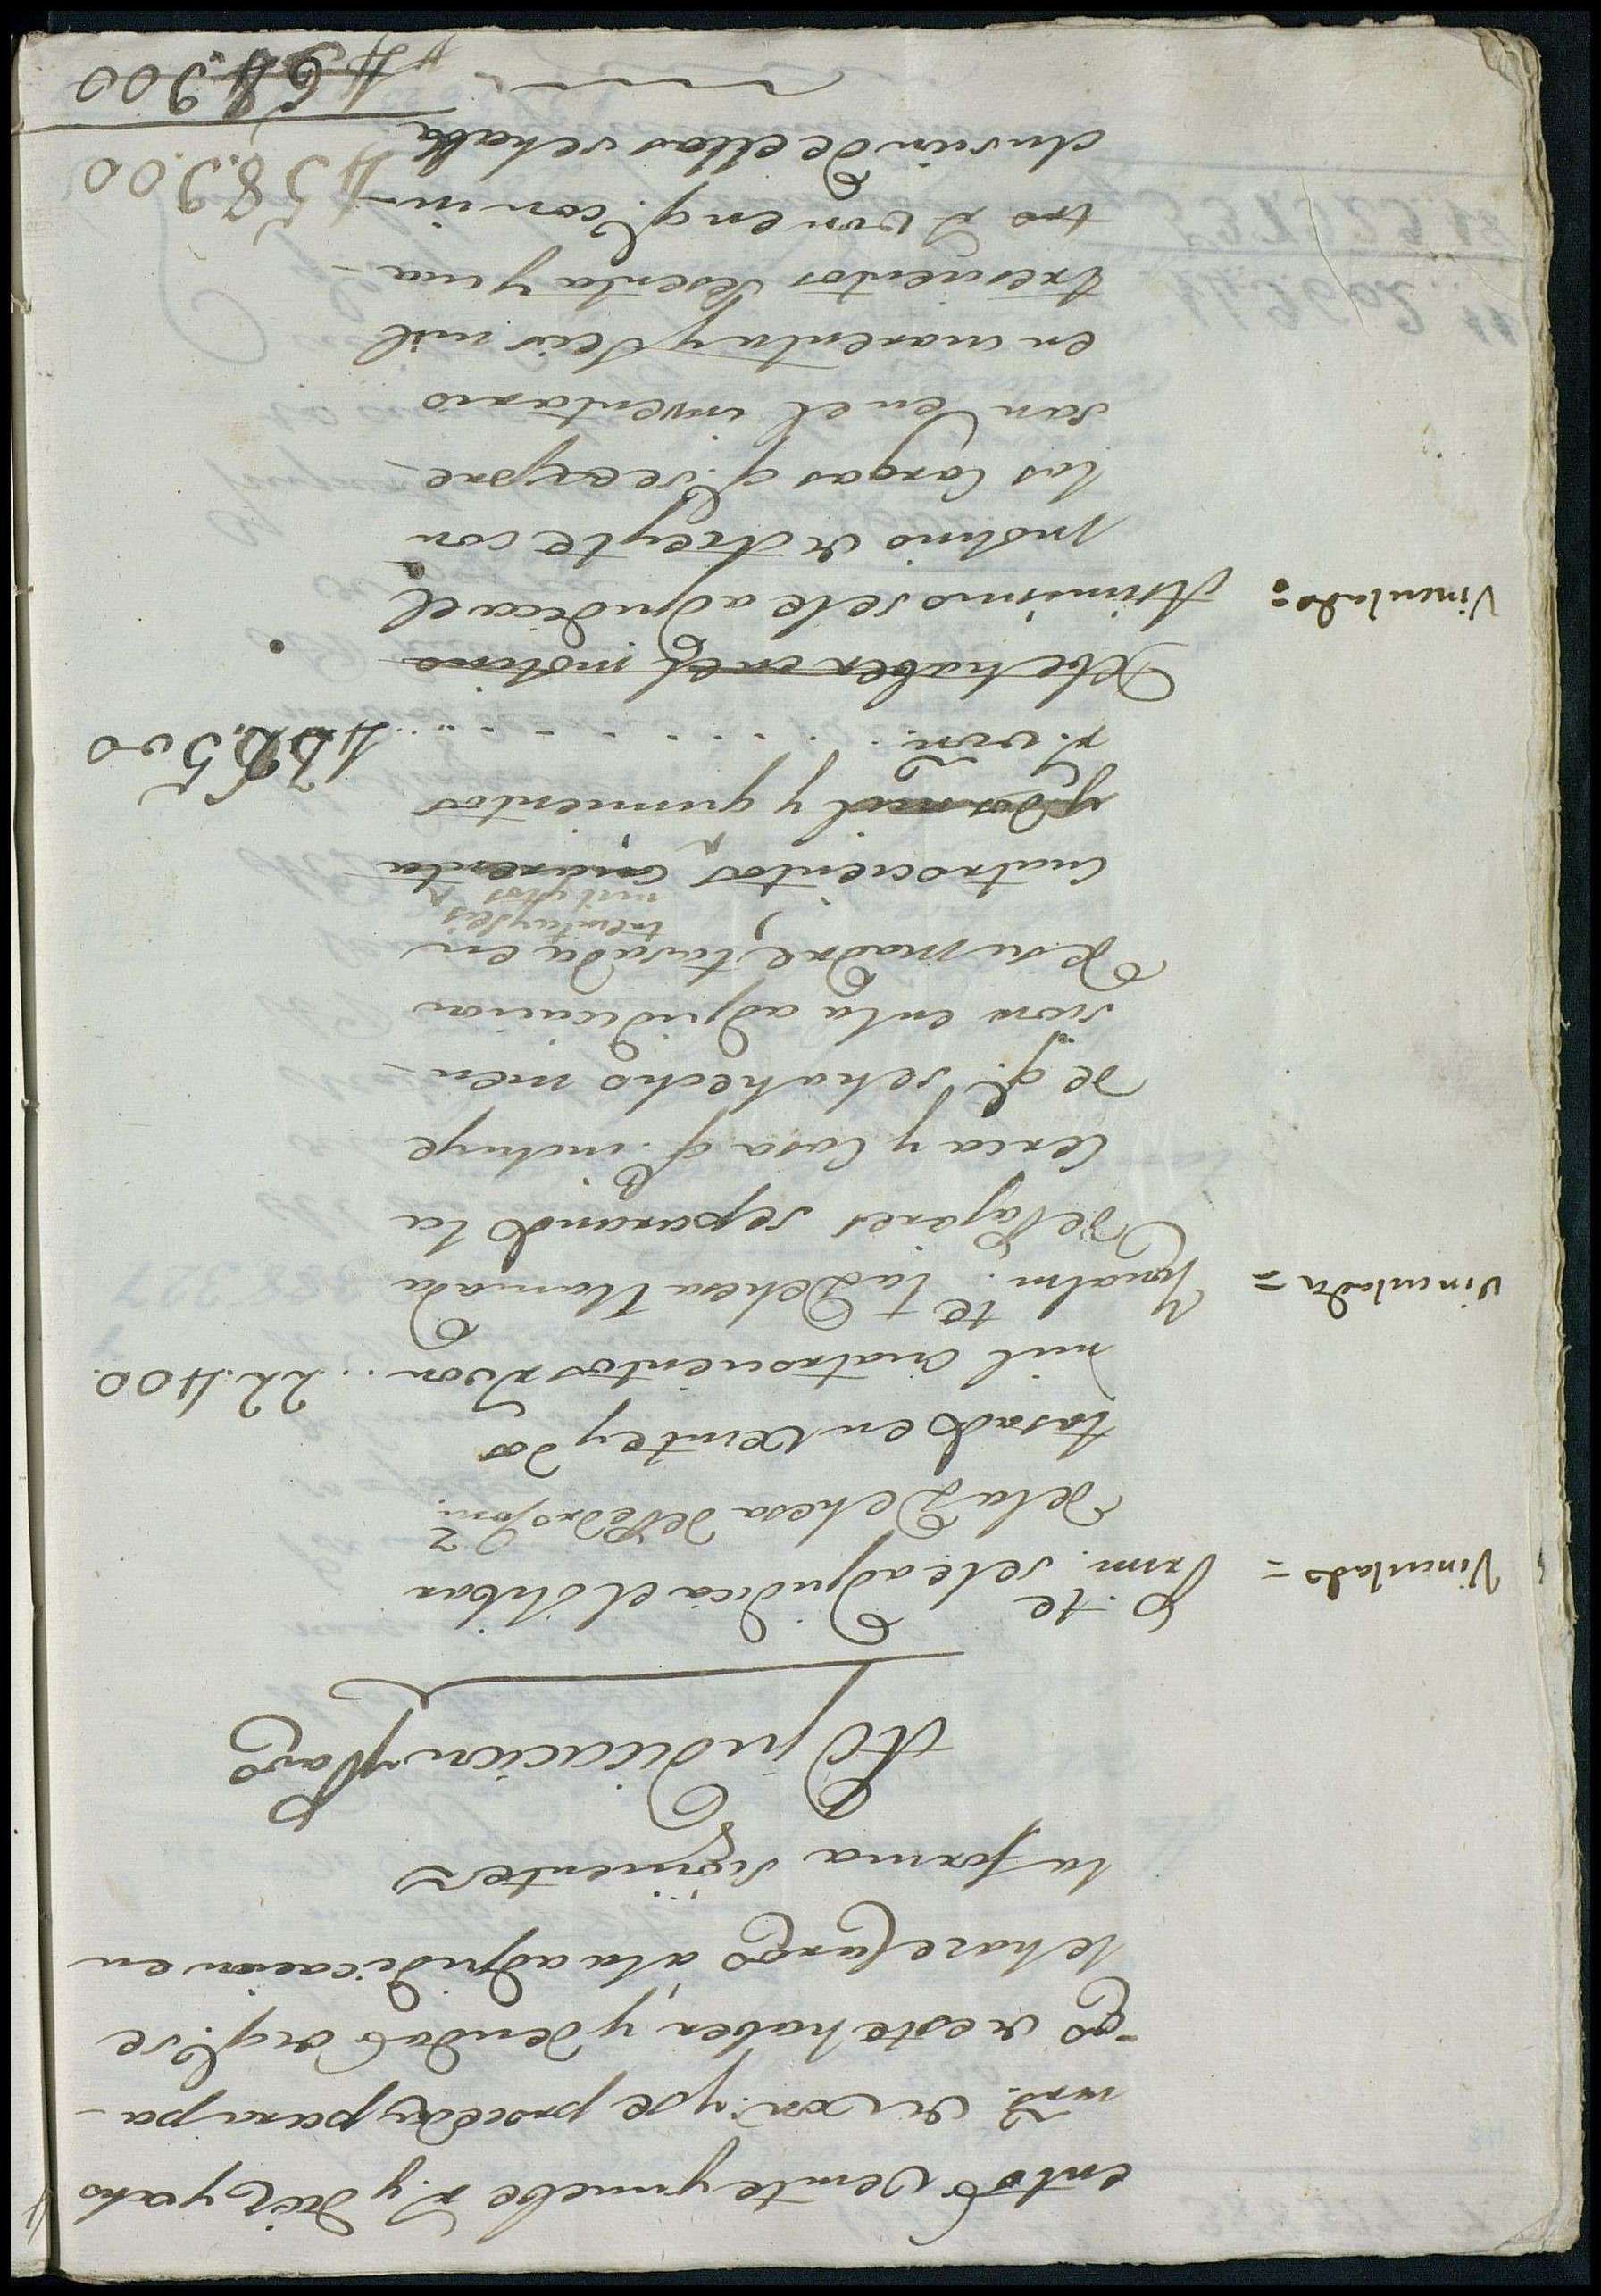 entos veinte y nuebe r.s y diez y ocho
mrs. de von. y de procede y para pa-
-go de este haber y deudas de q.e se
le hace cargo a la adjudicacion en
la forma siguiente=
Adjudicacion y Pago
Vinculado= Prim.te se le adjudica el olibar
de la Dehesa de Pedro
tasado en veinte y dos
mil cuatrocientos r.s von... 22.400.
Vinculada= Ygualm.te la Dehesa llamada
de Pajares separando la
Cerca y Casa q.e incluye
de q.e se ha hecho men-
sion en la adjudicacion
de su madre, tasada en
treinta y seis
mil
cuatrocientos cuarenta
y dos mil y quinientos
r.s von. . . . . . . . 500
Debe haber en el molino
Vinculado= Asimismo se le adjudica el
molino de Aceyte con
las cargas q.e se expre-
san en el inventario
en cuarenta y seis mil
trescientos sesenta y cua-
tro r.s von en q.e con in-
clusion de ellas se halla
458.900